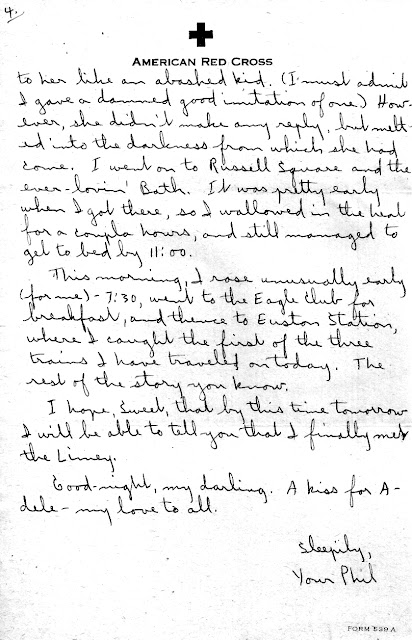 4.
AMERICAN RED CROSS
to her like an abashed kid. (I must admit
I gave a damned good imitation of one.) How-
ever, she didn't make any reply, but melt-
ed into the darkness from which she had
come. I went on to Russell Square and the
ever-lovin' Bath. It was pretty early
when I got there, so I wallowed in the heat
for a coupla hours, and still managed to
get to bed by 11:00.
This morning, I rose unusually early
(for me) - 7:30, went to the Eagle Club for
breakfast, and thence to Euston Station,
where I caught the first of the three
trains I have traveled on today. The
rest of the story you know.
I hope, Sweet, that by this time tomorrow
I will be able to tell you that I finally met
the Limey.
Good-night, my darling. A kiss for A-
dele - my love to all.
Sleepily,
Your Phil
FORM 539 A